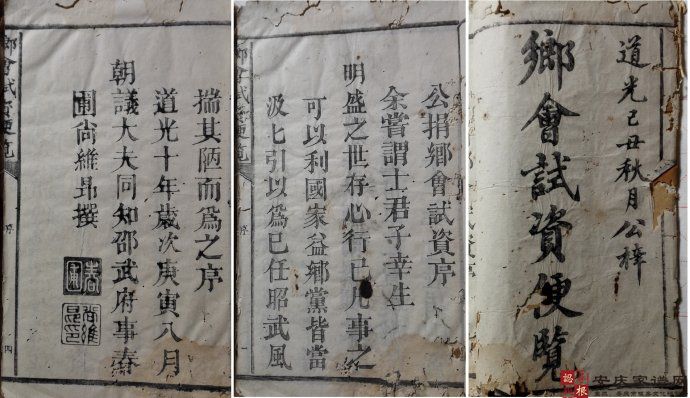 道光己丑秋月公梓
鄉會試資便覽
公捐鄉會試資序
余嘗謂士君子幸生
明盛之世存心行己凡事之
可以利國家益鄉黨皆當
汲匕引以爲己任昭武風
序
揣其陋而爲之序
道光十年歲次庚寅八月
朝議大夫同知邵武府事春
圃尚維昻撰
春圃
尚維昻印
鄉會試資便覽
序
四
安庆家谱网